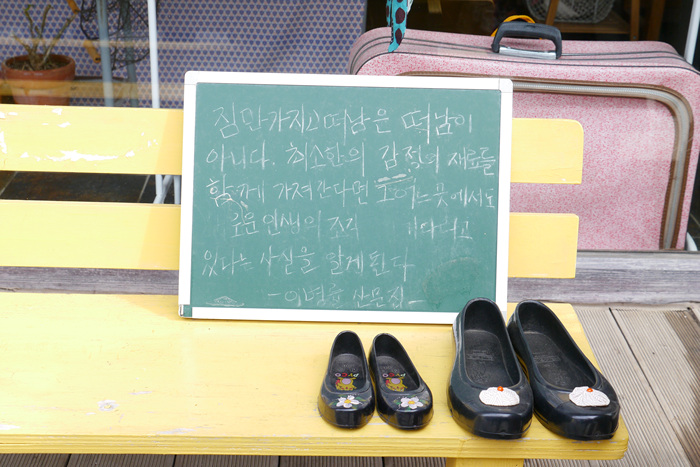 짐만 가지고 떠남은 떠남이
아니다. 최소한의 감정의 재료들
함께 가져간다면 곳에서도
인생의 조각 기다리고
있다는 사실을 알게 된다
- 이병률 산문집 -